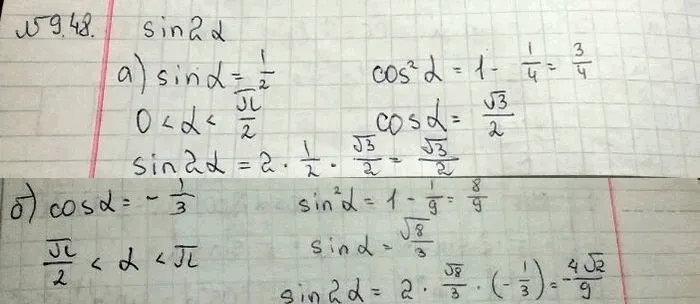 №9.48. sin2α
а) sinα = 1/2 cos²α = 1 - 1/4 = 3/4
0 < α < π/2 cosα = √3/2
sin2α = 2 · 1/2 · √3/2 = √3/2
б) cosα = - 1/3 sin²α = 1 - 1/9 = 8/9
π/2 < α < π sinα = √8/3
sin2α = 2 · √8/3 · (-1/3) = -4√2/9